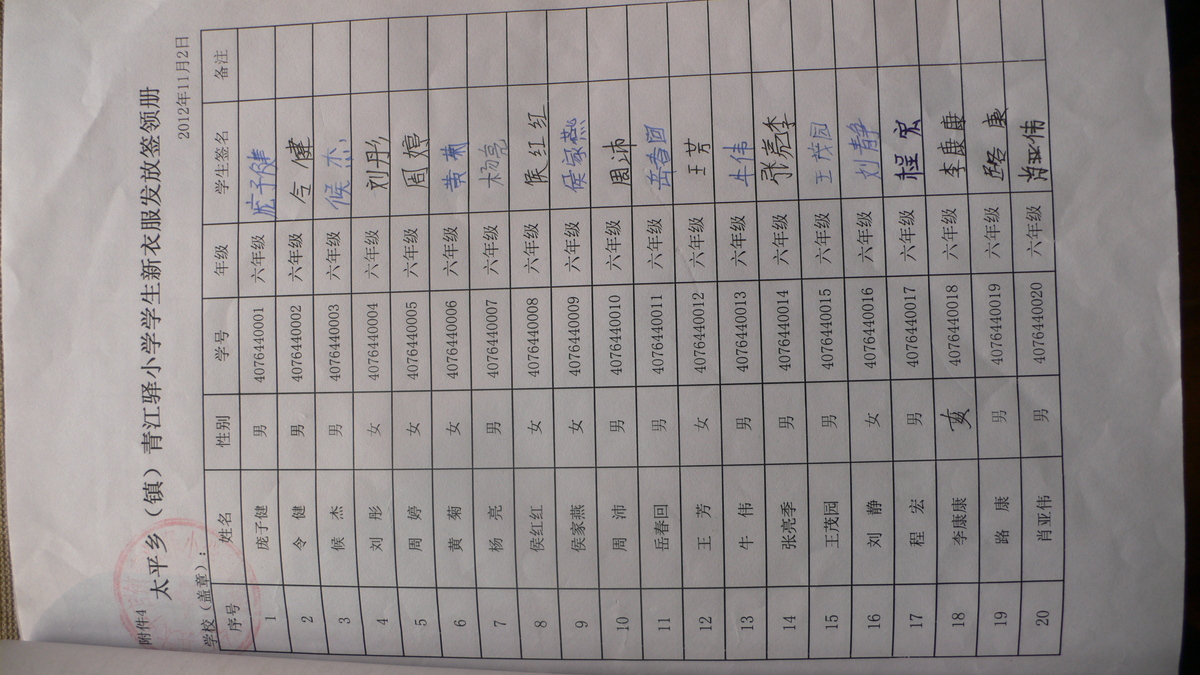 附件4
太平乡（镇）青江驿小学学生新衣服发放签领册
学校（盖章）： 2012年11月2日
序号 姓名 性别 学号 年级 学生签名 备注
1 庞子健 男 4076440001 六年级 庞子健
2 令健 男 4076440002 六年级 令健
3 候杰 男 4076440003 六年级 候杰
4 刘彤 女 4076440004 六年级 刘彤
5 周婷 女 4076440005 六年级 周婷
6 黄菊 女 4076440006 六年级 黄菊
7 杨亮 男 4076440007 六年级 杨亮
8 侯红红 女 4076440008 六年级 侯红红
9 侯家燕 女 4076440009 六年级 侯家燕
10 周沛 男 4076440010 六年级 周沛
11 岳春回 男 4076440011 六年级 岳春回
12 王芳 女 4076440012 六年级 王芳
13 牛伟 男 4076440013 六年级 牛伟
14 张亮季 男 4076440014 六年级 张亮季
15 王茂园 男 4076440015 六年级 王茂园
16 刘静 女 4076440016 六年级 刘静
17 程宏 男 4076440017 六年级 程宏
18 李康康 女 4076440018 六年级 李康康
19 路康 男 4076440019 六年级 路康
20 肖亚伟 男 4076440020 六年级 肖亚伟